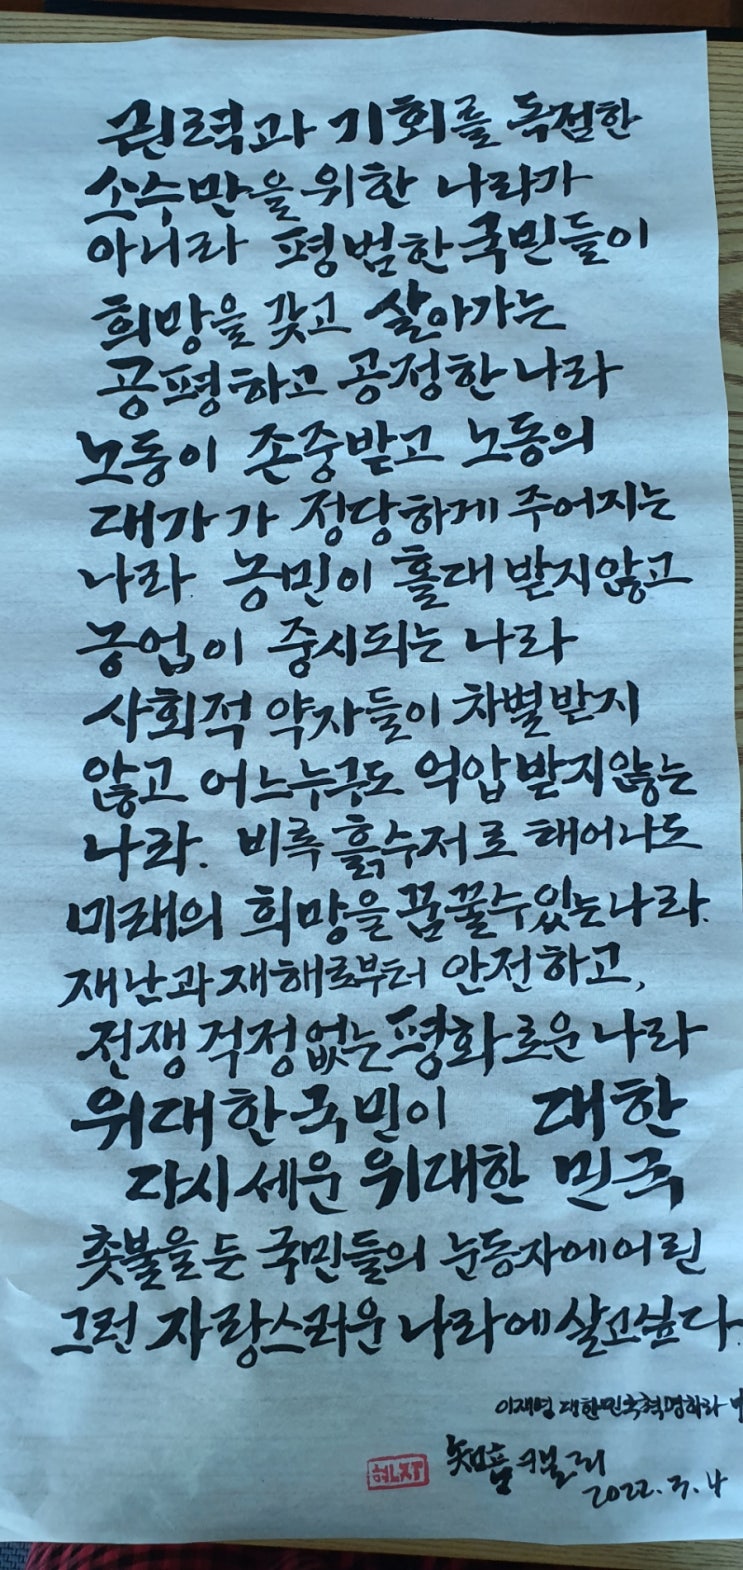 권력과 기회를 독점한
소수만을 위한 나라가
아니라 평범한 국민들이
희망을 갖고 살아가는
공평하고 공정한 나라
노동이 존중받고 노동의
대가가 정당하게 주어지는
나라. 농민이 홀대 받지않고
농업이 중시되는 나라
사회적 약자들이 차별받지
않고 어느누구도 억압받지않는
나라. 비록 흙수저로 태어나도
미래의 희망을 꿈꿀수있는나라.
재난과 재해로부터 안전하고,
전쟁 걱정없는 평화로운 나라
위대한국민이 대한
다시세운 위대한 민국
촛불을 든 국민들의 눈동자에어린
그런 자랑스러운 나라에 살고싶다.
이재명 대한민국혁명하라
知音
2022. 3. 4